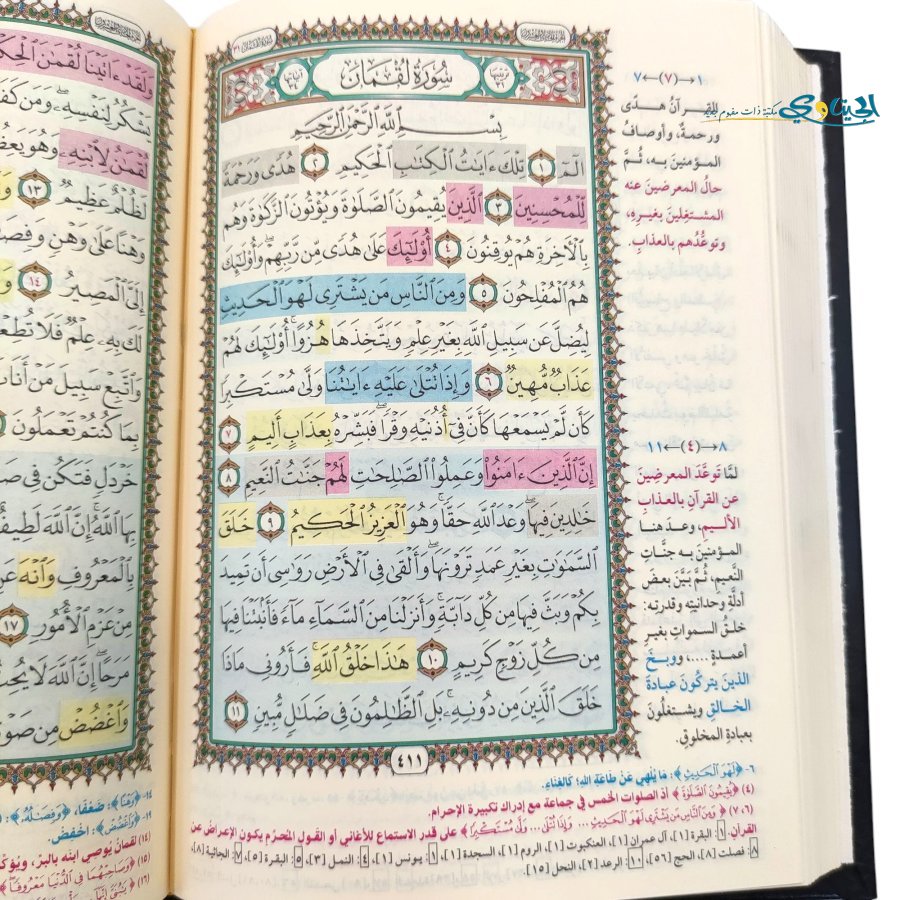 سُورَةُ لُقْمَانَ
ترتيبها ٣١
آياتها ٣٤
بِسْمِ ٱللَّهِ ٱلرَّحْمَٰنِ ٱلرَّحِيمِ
الٓمٓ ١ تِلْكَ ءَايَٰتُ ٱلْكِتَٰبِ ٱلْحَكِيمِ ٢ هُدًى وَرَحْمَةً
لِّلْمُحْسِنِينَ ٣ ٱلَّذِينَ يُقِيمُونَ ٱلصَّلَوٰةَ وَيُؤْتُونَ ٱلزَّكَوٰةَ وَهُم
بِٱلْءَاخِرَةِ هُمْ يُوقِنُونَ ٤ أُو۟لَٰٓئِكَ عَلَىٰ هُدًى مِّن رَّبِّهِمْ ۖ وَأُو۟لَٰٓئِكَ
هُمُ ٱلْمُفْلِحُونَ ٥ وَمِنَ ٱلنَّاسِ مَن يَشْتَرِى لَهْوَ ٱلْحَدِيثِ
لِيُضِلَّ عَن سَبِيلِ ٱللَّهِ بِغَيْرِ عِلْمٍ وَيَتَّخِذَهَا هُزُوًا ۚ أُو۟لَٰٓئِكَ لَهُمْ
عَذَابٌ مُّهِينٌ ٦ وَإِذَا تُتْلَىٰ عَلَيْهِ ءَايَٰتُنَا وَلَّىٰ مُسْتَكْبِرًا
كَأَن لَّمْ يَسْمَعْهَا كَأَنَّ فِىٓ أُذُنَيْهِ وَقْرًا ۖ فَبَشِّرْهُ بِعَذَابٍ أَلِيمٍ ٧
إِنَّ ٱلَّذِينَ ءَامَنُوا۟ وَعَمِلُوا۟ ٱلصَّٰلِحَٰتِ لَهُمْ جَنَّٰتُ ٱلنَّعِيمِ ٨
خَٰلِدِينَ فِيهَا ۖ وَعْدَ ٱللَّهِ حَقًّا ۚ وَهُوَ ٱلْعَزِيزُ ٱلْحَكِيمُ ٩ خَلَقَ
ٱلسَّمَٰوَٰتِ بِغَيْرِ عَمَدٍ تَرَوْنَهَا ۖ وَأَلْقَىٰ فِى ٱلْأَرْضِ رَوَٰسِىَ أَن تَمِيدَ
بِكُمْ وَبَثَّ فِيهَا مِن كُلِّ دَآبَّةٍ ۚ وَأَنزَلْنَا مِنَ ٱلسَّمَآءِ مَآءً فَأَنۢبَتْنَا فِيهَا
مِن كُلِّ زَوْجٍ كَرِيمٍ ١٠ هَٰذَا خَلْقُ ٱللَّهِ فَأَرُونِى مَاذَا
خَلَقَ ٱلَّذِينَ مِن دُونِهِۦ ۚ بَلِ ٱلظَّٰلِمُونَ فِى ضَلَٰلٍ مُّبِينٍ ١١
٤١١
الجيناوي مكتبة ذات مفهوم جديد
١ ←(٧)← ٧
للقرآنُ هُدًى
ورحمةٌ، وأوصافُ
المؤمنينَ به، ثُمَّ
حالُ المعرضينَ عنه
المشتغلينَ بغيرِه،
وتوعُّدُهم بالعذابِ.
٨ ←(٤)← ١١
لمَّا توعَّدَ المعرضينَ
عن القرآنِ بالعذابِ
الأليمِ، وعدَ هنا
المؤمنينَ به جنَّاتِ
النَّعيمِ، ثُمَّ بيَّنَ بعضَ
أدلَّةِ وحدانيتِه وقدرتِه:
خلقُ السمواتِ بغيرِ
أعمدةٍ ....، ووبخَ
الذينَ يتركونَ عبادةَ
الخالقِ ويشتغلُونَ
بعبادةِ المخلوقِ.
٦- ﴿لَهْوَ ٱلْحَدِيثِ﴾: مَا يُلْهِي عَنْ طَاعَةِ اللهِ؛ كَالغِنَاءِ.
(٤) ﴿يُقِيمُونَ ٱلصَّلَوٰةَ﴾ أدِّ الصلوات الخمس في جماعة مع إدراك تكبيرة الإحرام.
(٦، ٧) ﴿وَمِنَ ٱلنَّاسِ مَن يَشْتَرِى لَهْوَ ٱلْحَدِيثِ ... وَإِذَا تُتْلَىٰ ... وَلَّىٰ مُسْتَكْبِرًا﴾ على قدر الاستماع للأغاني أو القول المحرّم يكون الإعراض عن
القرآن. ١: البقرة [١]، آل عمران [١]، العنكبوت [١]، الروم [١]، السجدة [١]، ١: يونس [١]، ٤: النمل [٣]، ٥: البقرة [٥]، ٧: الجاثية [٨]،
٨: فصلت [٨]، الحج [٥٦]، ١٠: الرعد [٢]، النحل [١٥].
وَلَقَدْ ءَاتَيْنَا لُقْمَٰنَ
يَشْكُرُ لِنَفْسِهِۦ ۖ وَمَن
لُقْمَٰنُ لِٱبْنِهِۦ وَهُوَ
لَظُلْمٌ عَظِيمٌ ١٣
وَهْنًا عَلَىٰ وَهْنٍ
إِلَىَّ ٱلْمَصِيرُ ١٤
لَكَ بِهِۦ عِلْمٌ فَلَا
وَٱتَّبِعْ سَبِيلَ مَنْ أَنَابَ
بِمَا كُنتُمْ تَعْمَلُونَ
خَرْدَلٍ فَتَكُن فِى
بِهَا ٱللَّهُ ۚ إِنَّ ٱللَّهَ
بِٱلْمَعْرُوفِ وَٱنْهَ
مِنْ عَزْمِ ٱلْأُمُورِ ١٧
مَرَحًا ۖ إِنَّ ٱللَّهَ لَا
وَٱغْضُضْ مِن
١٤- ﴿وَهْنًا﴾: ضَعْفًا، ﴿وَفِصَٰلُهُۥ﴾:
١٩- ﴿وَٱغْضُضْ﴾: اخْفِضْ.
(١٤) لقمانُ يوصي ابنه بالبرّ،
(١٥) ﴿وَصَاحِبْهُمَا فِى ٱلدُّنْيَا مَعْرُوفًا﴾
(١٦) ﴿يَٰبُنَىَّ إِنَّهَآ